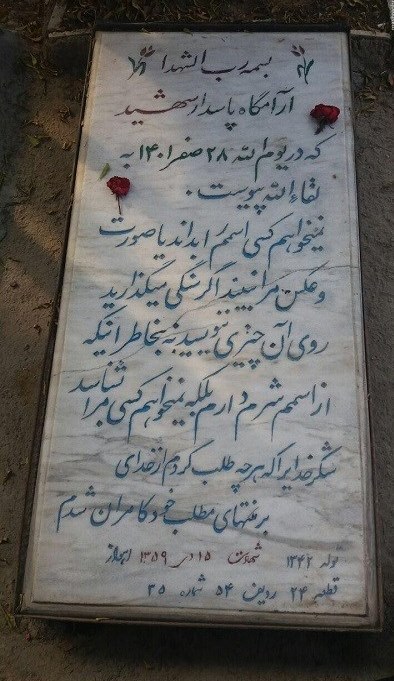 بسمه رب الشهدا
آرامگاه پاسدار شهید
که در یوم الله ۲۸ صفر ۱۴۰۱ به
لقاء الله پیوست.
نمیخواهم کسی اسمم را بداند یا صورت
و عکس مرا ببیند اگر سنگی میگذارید
روی آن چیزی ننویسید نه بخاطر اینکه
از اسمم شرم دارم بلکه نمیخواهم کسی مرا بشناسد
شکر خدا را که هر چه طلب کردم از خدای
بر منتهای مطلب خود کامران شدم
تولد ۱۳۴۲ شهادت ۱۵ دی ۱۳۵۹ اهواز
قطعه ۲۴ ردیف ۵۴ شماره ۲۵